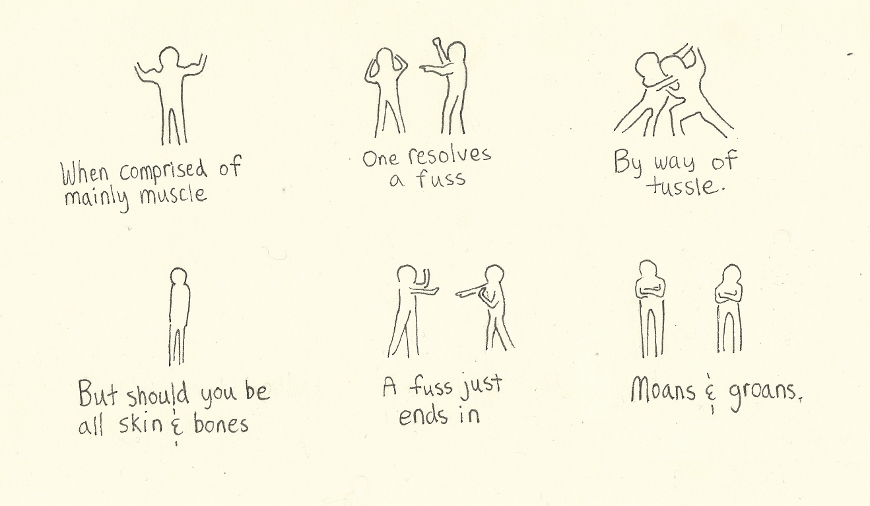 When comprised of
mainly muscle
One resolves
a fuss
By way of
tussle.
But should you be
all skin & bones
A fuss just
ends in
Moans & groans.